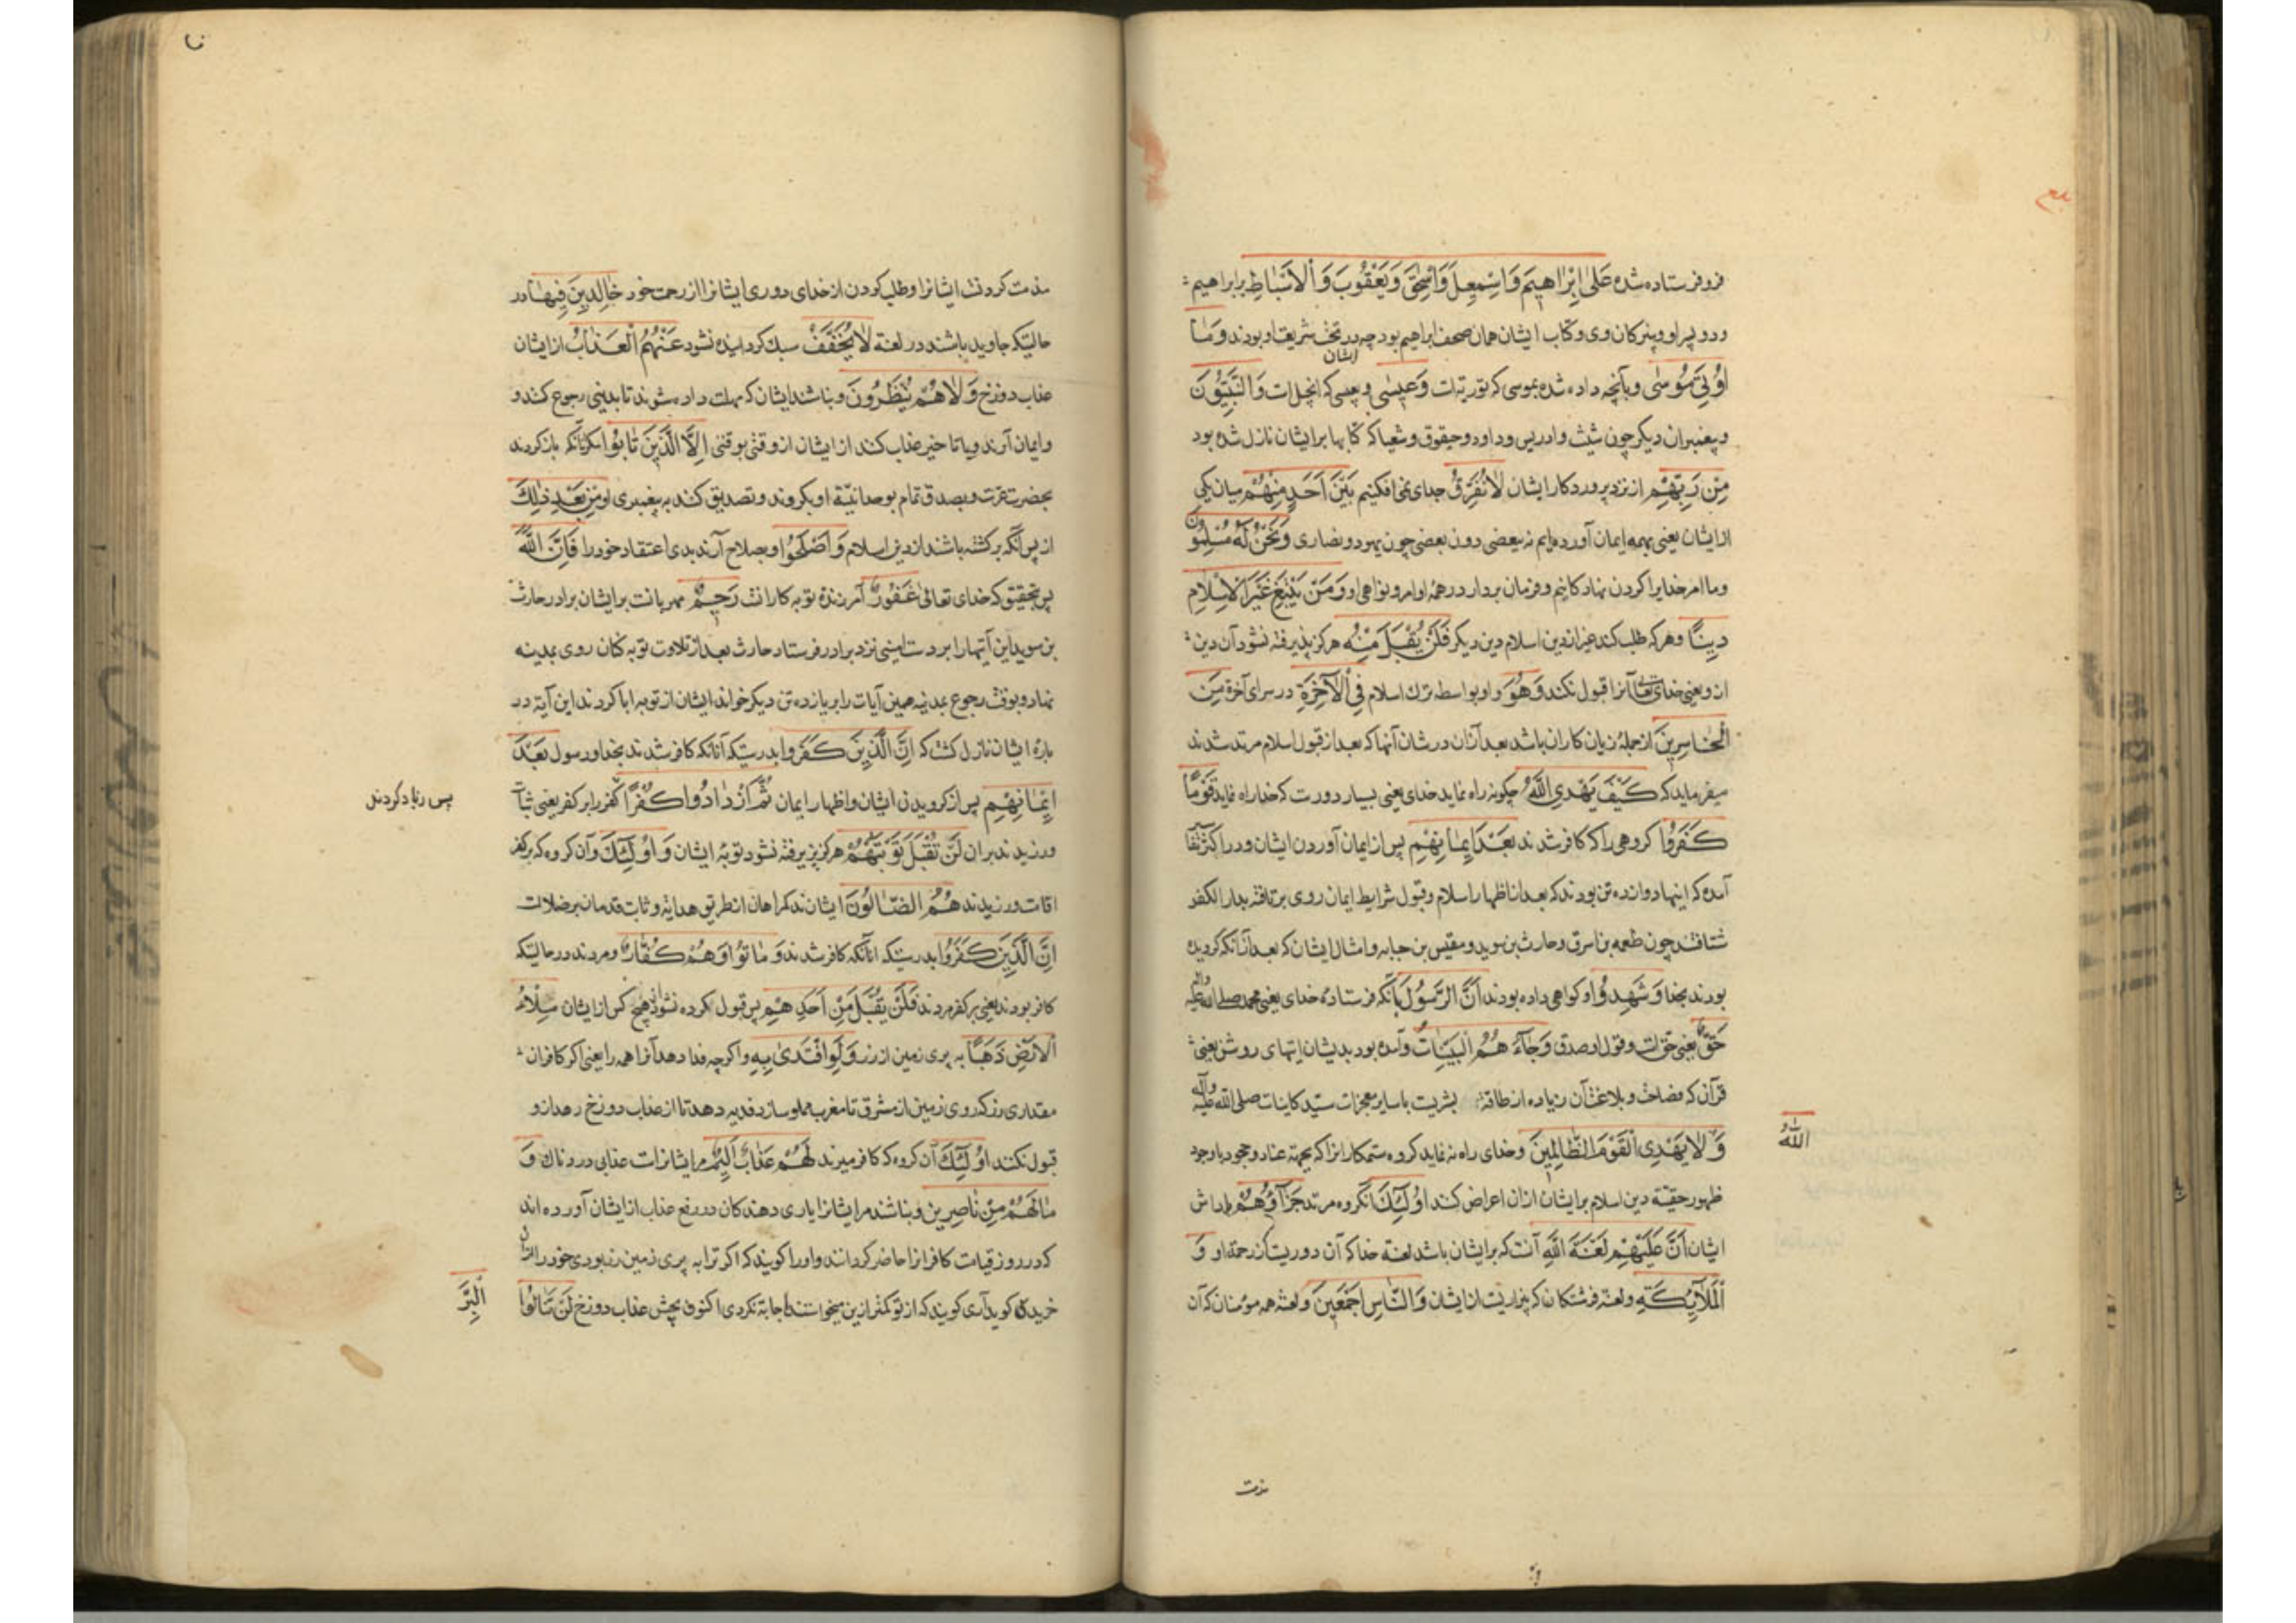 فروفرستاده شده عَلٰی اِبْرٰاهیمَ وَاِسْمٰعِیلَ وَاِسْحٰقَ وَیَعْقُوبَ وَالْاَسْبٰاطِ برابراهیم
ودو پسر او وپسرکان وی وکتاب ایشان همان صحف ابراهیم بود چه در تحت شریعت او بودند وَمٰا
ایشان
اُوتِیَ مُوسٰی وبآنچه داده شده بموسی که توریة است وَعِیسٰی وبعیسی که انجیل است وَالنَّبِیُّونَ
وپیغمبران دیکر چون شیث وادریس وداود وحیقوق وشعیا که کتابها برایشان نازل شده بود
مِنْ رَبِّهِمْ از نزد پروردکار ایشان لٰانُفَرِّقُ جدای نمی افکنیم بَیْنَ اَحَدٍ مِنْهُمْ میان یکی
از ایشان یعنی بهمه ایمان آورده ایم نه ببعضی دون بعضی چون یهود ونصاری وَنَحْنُ لَهُ مُسْلِمُونَ
وما امر خدایرا کردن نهادکانیم وفرمان بردار در همه اوامر ونواهی او وَمَنْ یَبْتَغِ غَیْرَ الْاِسْلٰامِ
دِینًا وهرکه طلب کند غیر از دین اسلام دین دیکر فَلَنْ یُقْبَلَ مِنْهُ هرکز پذیرفته نشود آن دین
از و یعنی خدای تعالی آنرا قبول نکند وَهُوَ واو بواسطه ترك اسلام فِی الْاٰخِرَةِ در سرای آخرة مِنَ
الْخٰاسِرِینَ از جملهٔ زیان کاران باشد بعد از آن در شان آنها که بعد از قبول اسلام مرتد شدند
میفرماید که کَیْفَ یَهْدِی اللّٰهُ چکونه راه نماید خدای یعنی بسیار دورست که خدا راه نماید قَوْمًا
کَفَرُوا کروهی را که کافر شدند بَعْدَ اِیمٰانِهِمْ پس از ایمان آوردن ایشان ودر اکثر تفا
آمده که اینها دوازده تن بودند که بعد از اظهار اسلام وقبول شرایط ایمان روی برتافته بدار الکفر
شتافتند چون طعمه بن ابیرق وحارث بن سوید ومقیس بن حبابه وامثال ایشان که بعد از آنکه کرویده
بودند بخدا وَشَهِدُوا وکواهی داده بودند اَنَّ الرَّسُولَ بآنکه فرستاده خدای یعنی محمد صلی الله علیه وآله
حَقٌّ یعنی حق است وقول او صدق وَجٰاءَهُمُ الْبَیِّنٰاتُ وآمده بود بدیشان ایتهای روشن یعنی
قرآن که فصاحت وبلاغت آن زیاده از طاقة بشریت باسایر معجزات سید کاینات صلی الله علیه وآله
وَ لٰایَهْدِی الْقَوْمَ الظّٰالِمِینَ وخدای راه نه نماید کروه ستمکارانرا که بجهة عناد وجحود باوجود
اللّٰهُ
ظهور حقیة دین اسلام برایشان ازان اعراض کنند اُولٰئِكَ آنکروه مرتد جَزٰاؤُهُمْ پاداش
ایشان اَنَّ عَلَیْهِمْ لَعْنَةَ اللّٰهِ آنست که برایشان باشد لعنة خدا که آن دوریست از رحمة او وَ
الْمَلٰائِکَةِ ولعنة فرشتکان که بیزاریست از ایشان وَالنّٰاسِ اَجْمَعِینَ ولعنة همه مومنان که آن
مذمت
مذمت کردنست ایشانرا وطلب کردن از خدای دوری ایشانرا از رحمت خود خٰالِدِینَ فِیهٰا در
حالتیکه جاوید باشند در لعنة لٰایُخَفَّفُ سبك کردانیده نشود عَنْهُمُ الْعَذٰابُ از ایشان
عذاب دوزخ وَلٰاهُمْ یُنْظَرُونَ ونباشند ایشان که مهلت داده شوند تا بدنیی رجوع کنند و
وایمان آرند ویا تاخیر عذاب کنند از ایشان از وقتی بوقتی اِلَّا الَّذِینَ تٰابُوا مکر آنانکه بازکردند
بحضرت عزت وبصدق تمام بوحدانیة او بکروند وتصدیق کنند به پیغمبری او مِنْ بَعْدِ ذٰلِكَ
از پس آنکه برکشته باشند از دین اسلام وَاَصْلَحُوا وبصلاح آرند بدی اعتقاد خود را فَاِنَّ اللّٰهَ
پس بتحقیق که خدای تعالی غَفُورٌ آمرزنده توبه کارانست رَحِیمٌ مهربانست برایشان برادر حارث
بن سوید این آیتها را بر دست امینی نزد برادر فرستاد حارث بعد از تلاوت توبه کنان روی بمدینه
نهاد وبوقت رجوع بمدینه همین آیات را بر یازده تن دیکر خواند ایشان از توبه ابا کردند این آیة در
بارهٔ ایشان نازل کشت که اِنَّ الَّذِینَ کَفَرُوا بدرستیکه آنانکه کافر شدند بخدا ورسول بَعْدَ
اِیمٰانِهِمْ پس از کرویدن ایشان واظهار ایمان ثُمَّ ازْدٰادُوا کُفْرًا کفر را بر کفر یعنی ثبات
پس زیاد کردند
ورزیدند بران لَنْ تُقْبَلَ تَوْبَتُهُمْ هرکز پذیرفته نشود توبهٔ ایشان وَاُولٰئِكَ وآن کروه که بر کفر
اقامت ورزیدند هُمُ الضّٰالُّونَ ایشانند کمراهان از طریق هدایة وثابت قدمان بر ضلالت
اِنَّ الَّذِینَ کَفَرُوا بدرستیکه آنانکه کافر شدند وَ مٰاتُوا وَهُمْ کُفّٰارٌ ومردند در حالتیکه
کافر بودند یعنی بر کفر مردند فَلَنْ یُقْبَلَ مِنْ اَحَدِهِمْ پس قبول کرده نشود از هیچ کس از ایشان مِلْءُ
الْاَرْضِ ذَهَبًا به پری زمین از زر وَلَوِ افْتَدٰی بِهِ واکرچه فدا دهد آنرا همه را یعنی اکر کافران
مقداری زر که روی زمین از مشرق تا مغرب مملو سازد فدیه دهد تا از عذاب دوزخ رهد ازو
قبول نکنند اُولٰئِكَ آن کروه که کافر میرند لَهُمْ عَذٰابٌ اَلِیمٌ مر ایشانراست عذابی دردناك وَ
مٰالَهُمْ مِنْ نٰاصِرِینَ ونباشند مر ایشانرا یاری دهندکان در رفع عذاب از ایشان آورده اند
که در روز قیامت کافرانرا حاضر کردانند واورا کویند که اکر ترا به پری زمین زر بودی خود را ازان
خریدی کوید آری کویند که از تو کمتر ازین میخواستند اجابة نکردی اکنون بچش عذاب دوزخ لَنْ تَنٰالُوا
الْبِرَّ